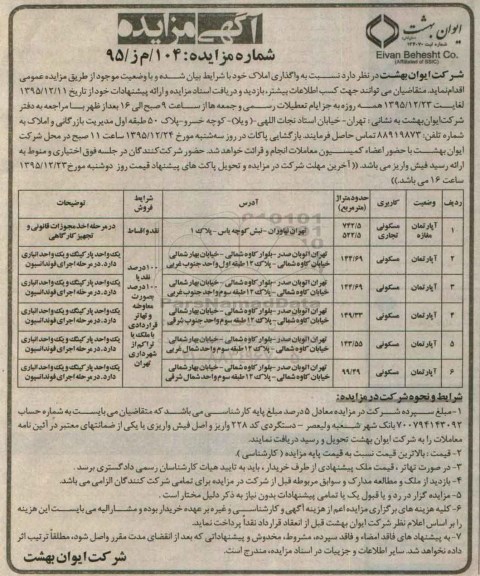 آگهی مزایده
شماره مزایده: ۱۰۴/م ز/۹۵
ایوان بهشت
(سهامی خاص)
شماره ثبت ۱۶۴۰۷۰
Eivan Behesht Co.
(Affiliated of SSIC)
شرکت ایوان بهشت در نظر دارد نسبت به واگذاری املاک خود با شرایط بیان شده و با وضعیت موجود از طریق مزایده عمومی
اقدام نماید. متقاضیان می توانند جهت کسب اطلاعات بیشتر، بازدید و دریافت اسناد مزایده و ارائه پیشنهادات خود از تاریخ ۱۳۹۵/۱۲/۱۱
لغایت ۱۳۹۵/۱۲/۲۳ همه روزه به جز ایام تعطیلات رسمی و جمعه ها از ساعت ۹ صبح الی ۱۶ بعد از ظهر با مراجعه به دفتر
شرکت ایوان بهشت به نشانی: تهران- خیابان استاد نجات اللهی -(ویلا)- کوچه خسرو-پلاک ۵۰ طبقه اول مدیریت بازرگانی و املاک به
شماره تلفن: ۸۸۹۱۹۸۷۳ تماس حاصل فرمایند. بازگشایی پاکات در روز سه شنبه مورخ ۱۳۹۵/۱۲/۲۴ ساعت ۱۱ صبح در محل شرکت
ایوان بهشت با حضور اعضاء کمیسیون معاملات انجام و قرائت خواهد شد. حضور شرکت کنندگان در جلسه فوق اختیاری و منوط به
ارائه رسید فیش واریز می باشد. (( آخرین مهلت شرکت در مزایده و تحویل پاکت های پیشنهاد قیمت روز دوشنبه مورخ ۱۳۹۵/۱۲/۲۳
ساعت ۱۶ می باشد.))
ردیف وضعیت کاربری حدود متراژ (متر مربع) آدرس شرایط فروش توضیحات
۱ آپارتمان مغازه مسکونی تجاری ۷۴۲/۵ ۵۲۲/۵ تهران نیاوران - نبش کوچه یاس - پلاک ۱ نقد و اقساط در مرحله اخذ مجوزات قانونی و تجهیز کارگاهی
۲ آپارتمان مسکونی ۱۴۲/۶۹ تهران اتوبان صدر -بلوار کاوه شمالی - خیابان بهار شمالی خیابان کاوه شمالی - پلاک ۱۲ طبقه اول واحد جنوب غربی یک واحد پارکینگ و یک واحد انباری دارد. در مرحله اجرای فونداسیون
۳ آپارتمان مسکونی ۱۴۲/۶۹ تهران اتوبان صدر -بلوار کاوه شمالی - خیابان بهار شمالی خیابان کاوه شمالی - پلاک ۱۲ طبقه سوم واحد جنوب غربی یک واحد پارکینگ و یک واحد انباری دارد. در مرحله اجرای فونداسیون
۴ آپارتمان مسکونی ۱۴۹/۳۳ تهران اتوبان صدر -بلوار کاوه شمالی - خیابان بهار شمالی خیابان کاوه شمالی - پلاک ۱۲ طبقه سوم واحد جنوب شرقی یک واحد پارکینگ و یک واحد انباری دارد. در مرحله اجرای فونداسیون
۵ آپارتمان مسکونی ۱۴۳/۵۵ تهران اتوبان صدر -بلوار کاوه شمالی - خیابان بهار شمالی خیابان کاوه شمالی - پلاک ۱۲ طبقه سوم واحد شمال غربی یک واحد پارکینگ و یک واحد انباری دارد. در مرحله اجرای فونداسیون
۶ آپارتمان مسکونی ۹۹/۴۹ تهران اتوبان صدر -بلوار کاوه شمالی - خیابان بهار شمالی خیابان کاوه شمالی - پلاک ۱۲ طبقه سوم واحد شمال شرقی یک واحد پارکینگ و یک واحد انباری دارد. در مرحله اجرای فونداسیون
۱۰۰ درصد نقد یا ۱۰۰ درصد بصورت معاوضه و تهاتر قراردادی با ملک یا تراکم از شهرداری تهران
شرایط و نحوه شرکت در مزایده:
۱- مبلغ سپرده شرکت در مزایده معادل ۵ درصد مبلغ پایه کارشناسی می باشد که متقاضیان می بایست به شماره حساب
۷۰۰۷۹۴۱۴۳۰۹۲ بانک شهر شعبه ولیعصر - دستگردی کد ۲۲۸ واریز و اصل فیش واریزی یا یکی از ضمانتهای معتبر در آئین نامه
معاملات را به شرکت ایوان بهشت تحویل و رسید دریافت نمایند.
۲- قیمت: بالاترین قیمت نسبت به قیمت پایه مزایده ( کارشناسی ).
۳- در صورت تهاتر، قیمت ملک پیشنهادی از طرف خریدار، باید به تایید هیات کارشناسان رسمی دادگستری برسد.
۴- بازدید از ملک و مطالعه مدارک و سوابق مربوطه قبل از شرکت در مزایده برای تمامی شرکت کنندگان الزامی می باشد.
۵- مزایده گزار در رد و یا قبول یک یا تمامی پیشنهادات بدون نیاز به ذکر دلیل مختار است.
۶- کلیه هزینه های برگزاری مزایده اعم از هزینه آگهی و کارشناسی و غیره بر عهده خریدار بوده و مشارالیه می بایست این هزینه
را بر اساس اعلام نظر شرکت ایوان بهشت قبل از انعقاد قرارداد نقداً پرداخت نماید.
۷- به پیشنهاد های فاقد امضاء و فاقد سپرده، مشروط، مخدوش و پیشنهاداتی که بعد از انقضای مدت مقرر واصل شود، مطلقاً ترتیب اثر
داده نخواهد شد. سایر اطلاعات و جزییات در اسناد مزایده، مندرج است.
شرکت ایوان بهشت